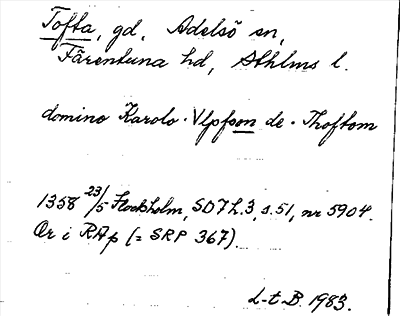 Tofta, gd, Adelsö sn,
Färentuna hd, Sthlms l.
domino Karolo · Vlpfson de · Thoftom
1358 23/5 Stockholm, SD 7 h.3, s.51, nr 5904.
Or i RAp (= SRP 367).
L-t B. 1983.